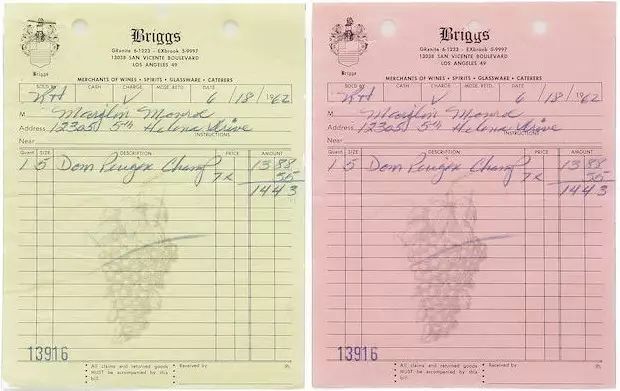 Briggs
GRanite 6-1223 - EXbrook 5-9997
13038 SAN VICENTE BOULEVARD
LOS ANGELES 49
Briggs
MERCHANTS OF WINES • SPIRITS • GLASSWARE • CATERERS
SOLD BY CASH CHARGE MDSE. RETD. DATE
V 6 / 18 / 1962
M Marilyn Monro
Address 12305 5th Helena Drive
INSTRUCTIONS
Near
Quant. SIZE DESCRIPTION PRICE AMOUNT
1 5 Dom Perigon Champ 13 88
7x 55
14 43
13916
All claims and returned goods MUST be accompanied by this bill.
Received by
Briggs
GRanite 6-1223 - EXbrook 5-9997
13038 SAN VICENTE BOULEVARD
LOS ANGELES 49
Briggs
MERCHANTS OF WINES • SPIRITS • GLASSWARE • CATERERS
SOLD BY CASH CHARGE MDSE. RETD. DATE
V 6 / 18 / 1962
M Marilyn Monro
Address 12305 5th Helena Drive
INSTRUCTIONS
Near
Quant. SIZE DESCRIPTION PRICE AMOUNT
1 5 Dom Perigon Champ 13 88
7x 55
14 43
13916
All claims and returned goods MUST be accompanied by this bill.
Received by